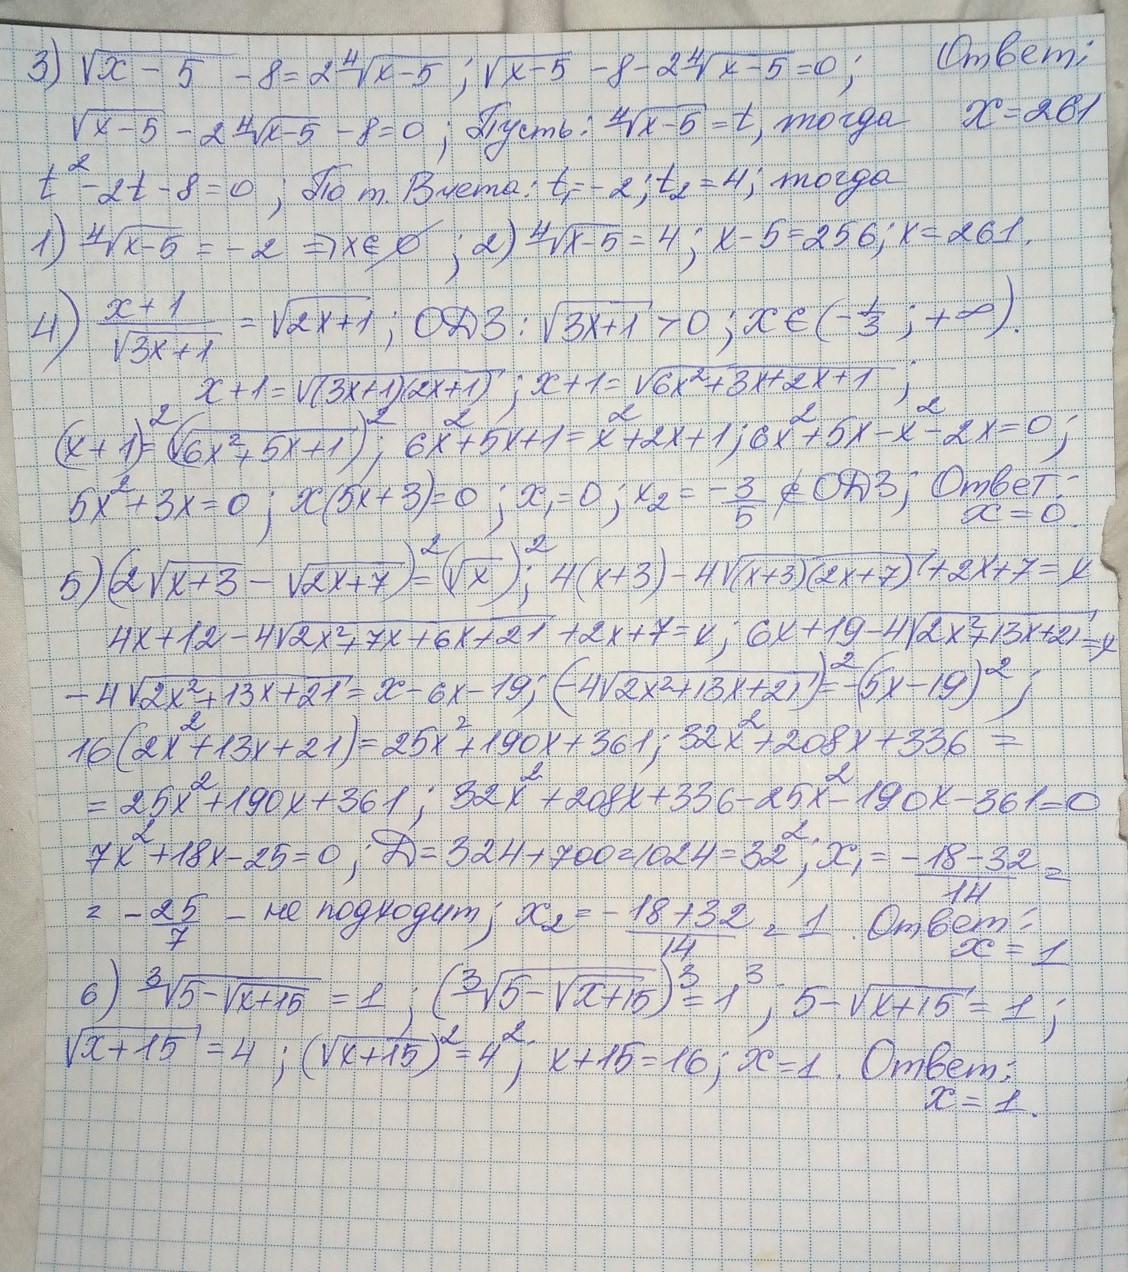 3) √x-5 - 8 = 2⁴√x-5 ; √x-5 - 8 - 2⁴√x-5 = 0 ; Ответ:
√x-5 - 2⁴√x-5 - 8 = 0 ; Пусть: ⁴√x-5 = t, тогда x = 261
t² - 2t - 8 = 0 ; По т. Виета: t₁ = -2 ; t₂ = 4 ; тогда
1) ⁴√x-5 = -2 ⇒ x ∈ ∅ ; 2) ⁴√x-5 = 4 ; x - 5 = 256 ; x = 261.
4) x+1/√3x+1 = √2x+1 ; ОДЗ : √3x+1 > 0 ; x ∈ (-1/3 ; +∞).
x+1 = √(3x+1)(2x+1) ; x+1 = √6x²+3x+2x+1 ;
(x+1)² = (√6x²+5x+1)² ; 6x²+5x+1 = x²+2x+1 ; 6x²+5x-x²-2x = 0 ;
5x²+3x = 0 ; x(5x+3) = 0 ; x₁ = 0 ; x₂ = -3/5 ∉ ОДЗ ; Ответ:
x = 0.
5) (2√x+3 - √2x+7)² = (√x)² ; 4(x+3) - 4√(x+3)(2x+7) + 2x+7 = x
4x+12-4√2x²+7x+6x+21 + 2x+7 = x ; 6x+19-4√2x²+13x+21 = x
-4√2x²+13x+21 = x-6x-19 ; (-4√2x²+13x+21)² = (-5x-19)² ;
16(2x²+13x+21) = 25x²+190x+361 ; 32x²+208x+336 =
= 25x²+190x+361 ; 32x²+208x+336-25x²-190x-361 = 0
7x²+18x-25 = 0 ; D = 324+700 = 1024 = 32² ; x₁ = -18-32/14 =
= -25/7 - не подходит ; x₂ = -18+32/14 = 1 . Ответ:
x = 1
6) ³√5-√x+15 = 1 ; (³√5-√x+15)³ = 1³ ; 5-√x+15 = 1 ;
√x+15 = 4 ; (√x+15)² = 4² ; x+15 = 16 ; x = 1 . Ответ:
x = 1.